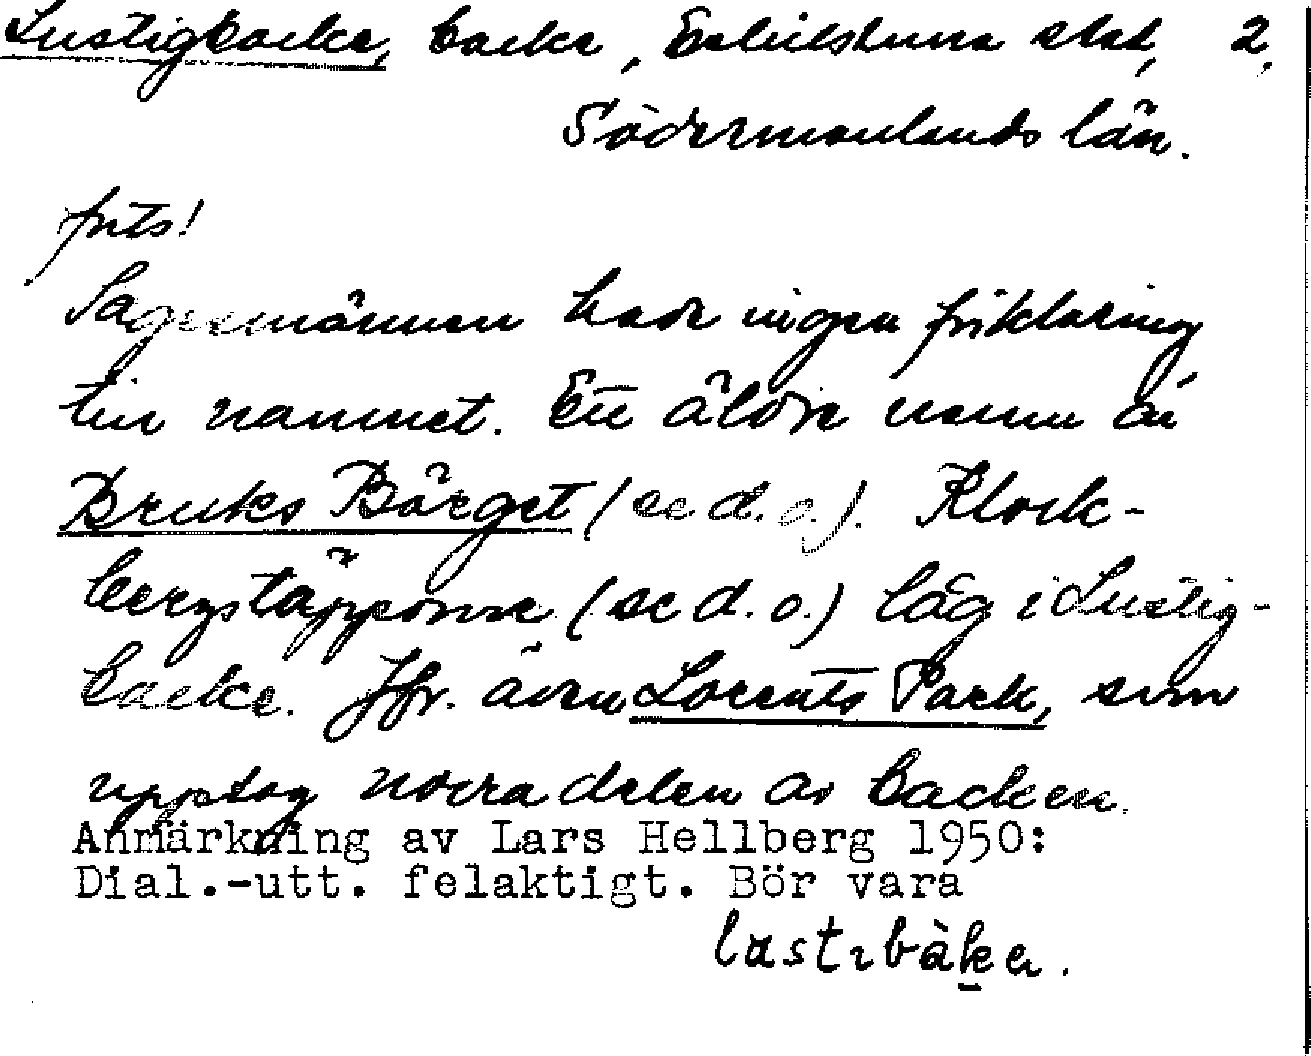 Lustigbacke, backe, Eskilstuna stad, 2.
Södermanlands län.
forts!
Sagesmännen hade ingen förklaring
till namnet. Ett äldre namn är
Bruks Bärget (se d. o.). Klock-
bergstäpporna (se d. o.) låg i Lustig-
backe. Jfr. även Lorents Park, som
upptog norra delen av backen.
Anmärkning av Lars Hellberg 1950:
Dial.-utt. felaktigt. Bör vara